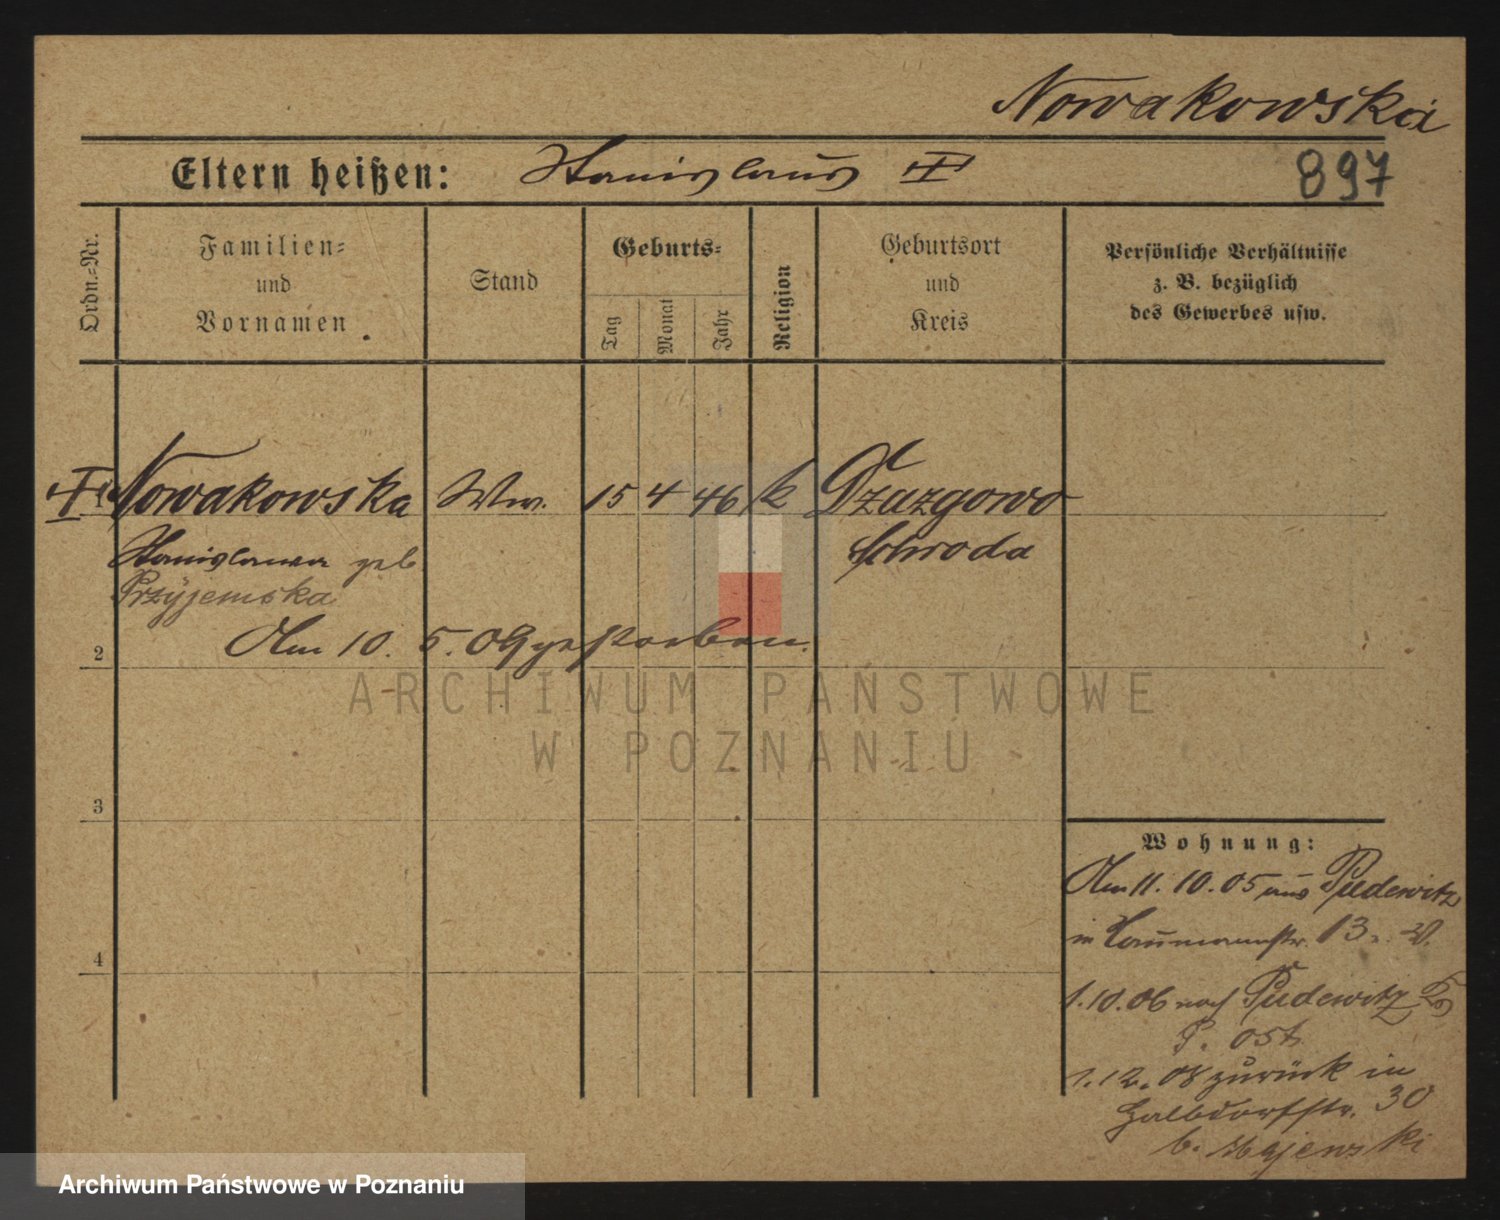 Nowakowska
897
Eltern heißen: Stanislaus
Ordn.=Nr.
Familien=
und
Vornamen
Stand
Geburts=
Tag
Monat
Jahr
Religion
Geburtsort
und
Kreis
Persönliche Verhältnisse
z. B. bezüglich
des Gewerbes usw.
Nowakowska Ww. 15 4 46 k Dzazgowo
Stanislawa geb Schroda
Przyjemska
Am 10. 5. 09 gestorben.
2
3
4
Wohnung:
Am 11. 10. 05 aus Pudewitz
in Naumannstr. 13.
1.10.06 nach Pudewitz
P. Ost
1.12.08 zurück in
Halbdorfstr. 30
b. Majewski
ARCHIWUM PAŃSTWOWE
W POZNANIU
Archiwum Państwowe w Poznaniu